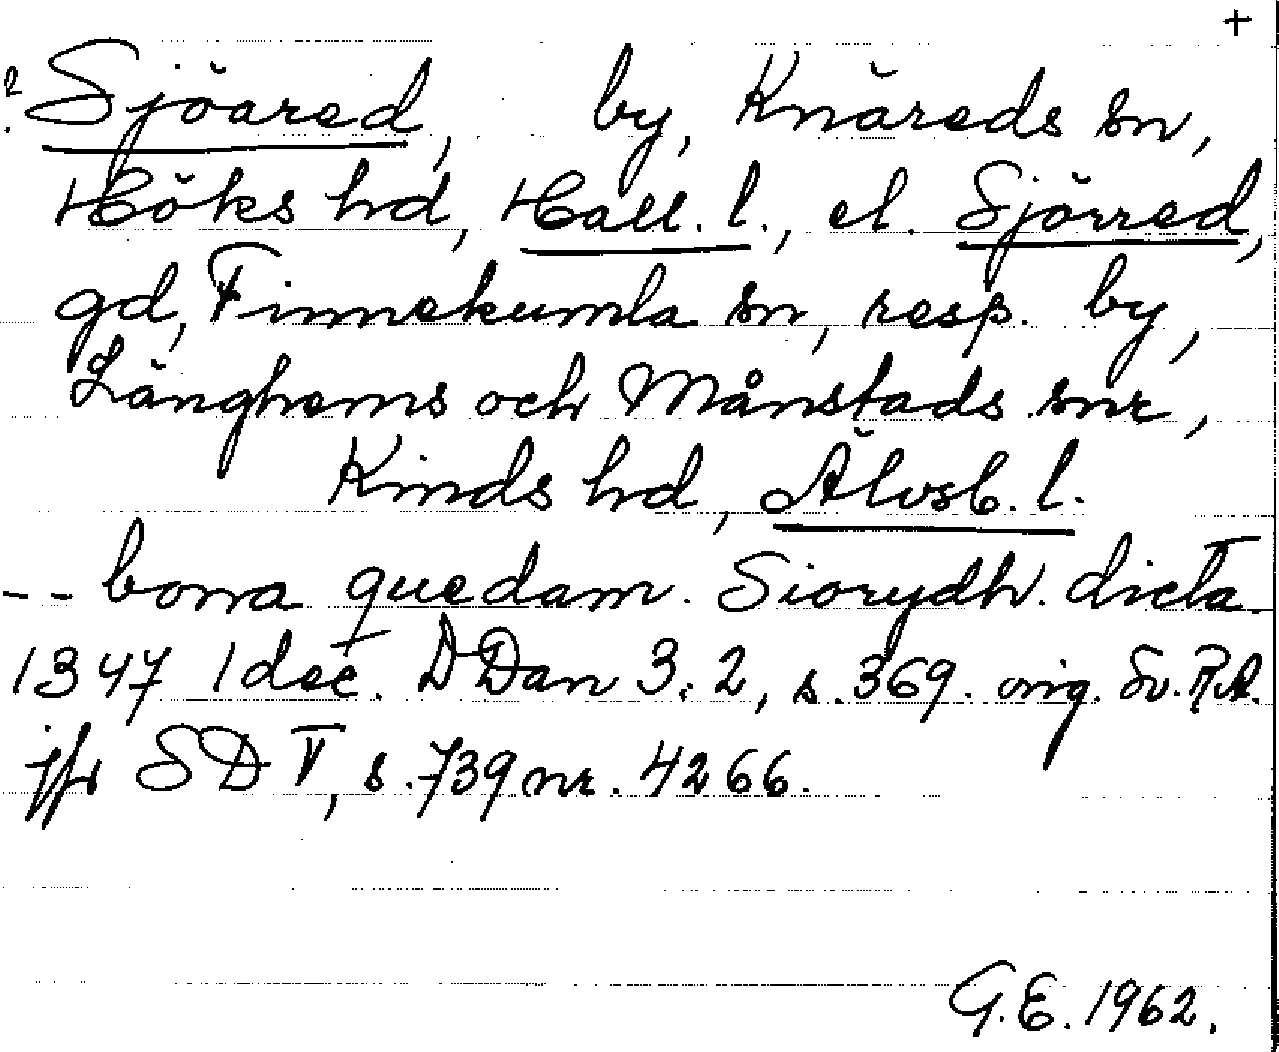 +
? Sjöared, by, Knäreds sn,
Höks hd, Hall. l., el. Sjörred,
gd, Finnekumla sn, resp. by,
Länghems och Månstads snr,
Kinds hd, Älvsb. l.
-- bona quedam. Siorydh. dicta
1347 1 dec. D Dan 3:2, s. 369. orig. Sv. RA.
jfr SD V, s. 739 nr. 4266.
G.E. 1962.